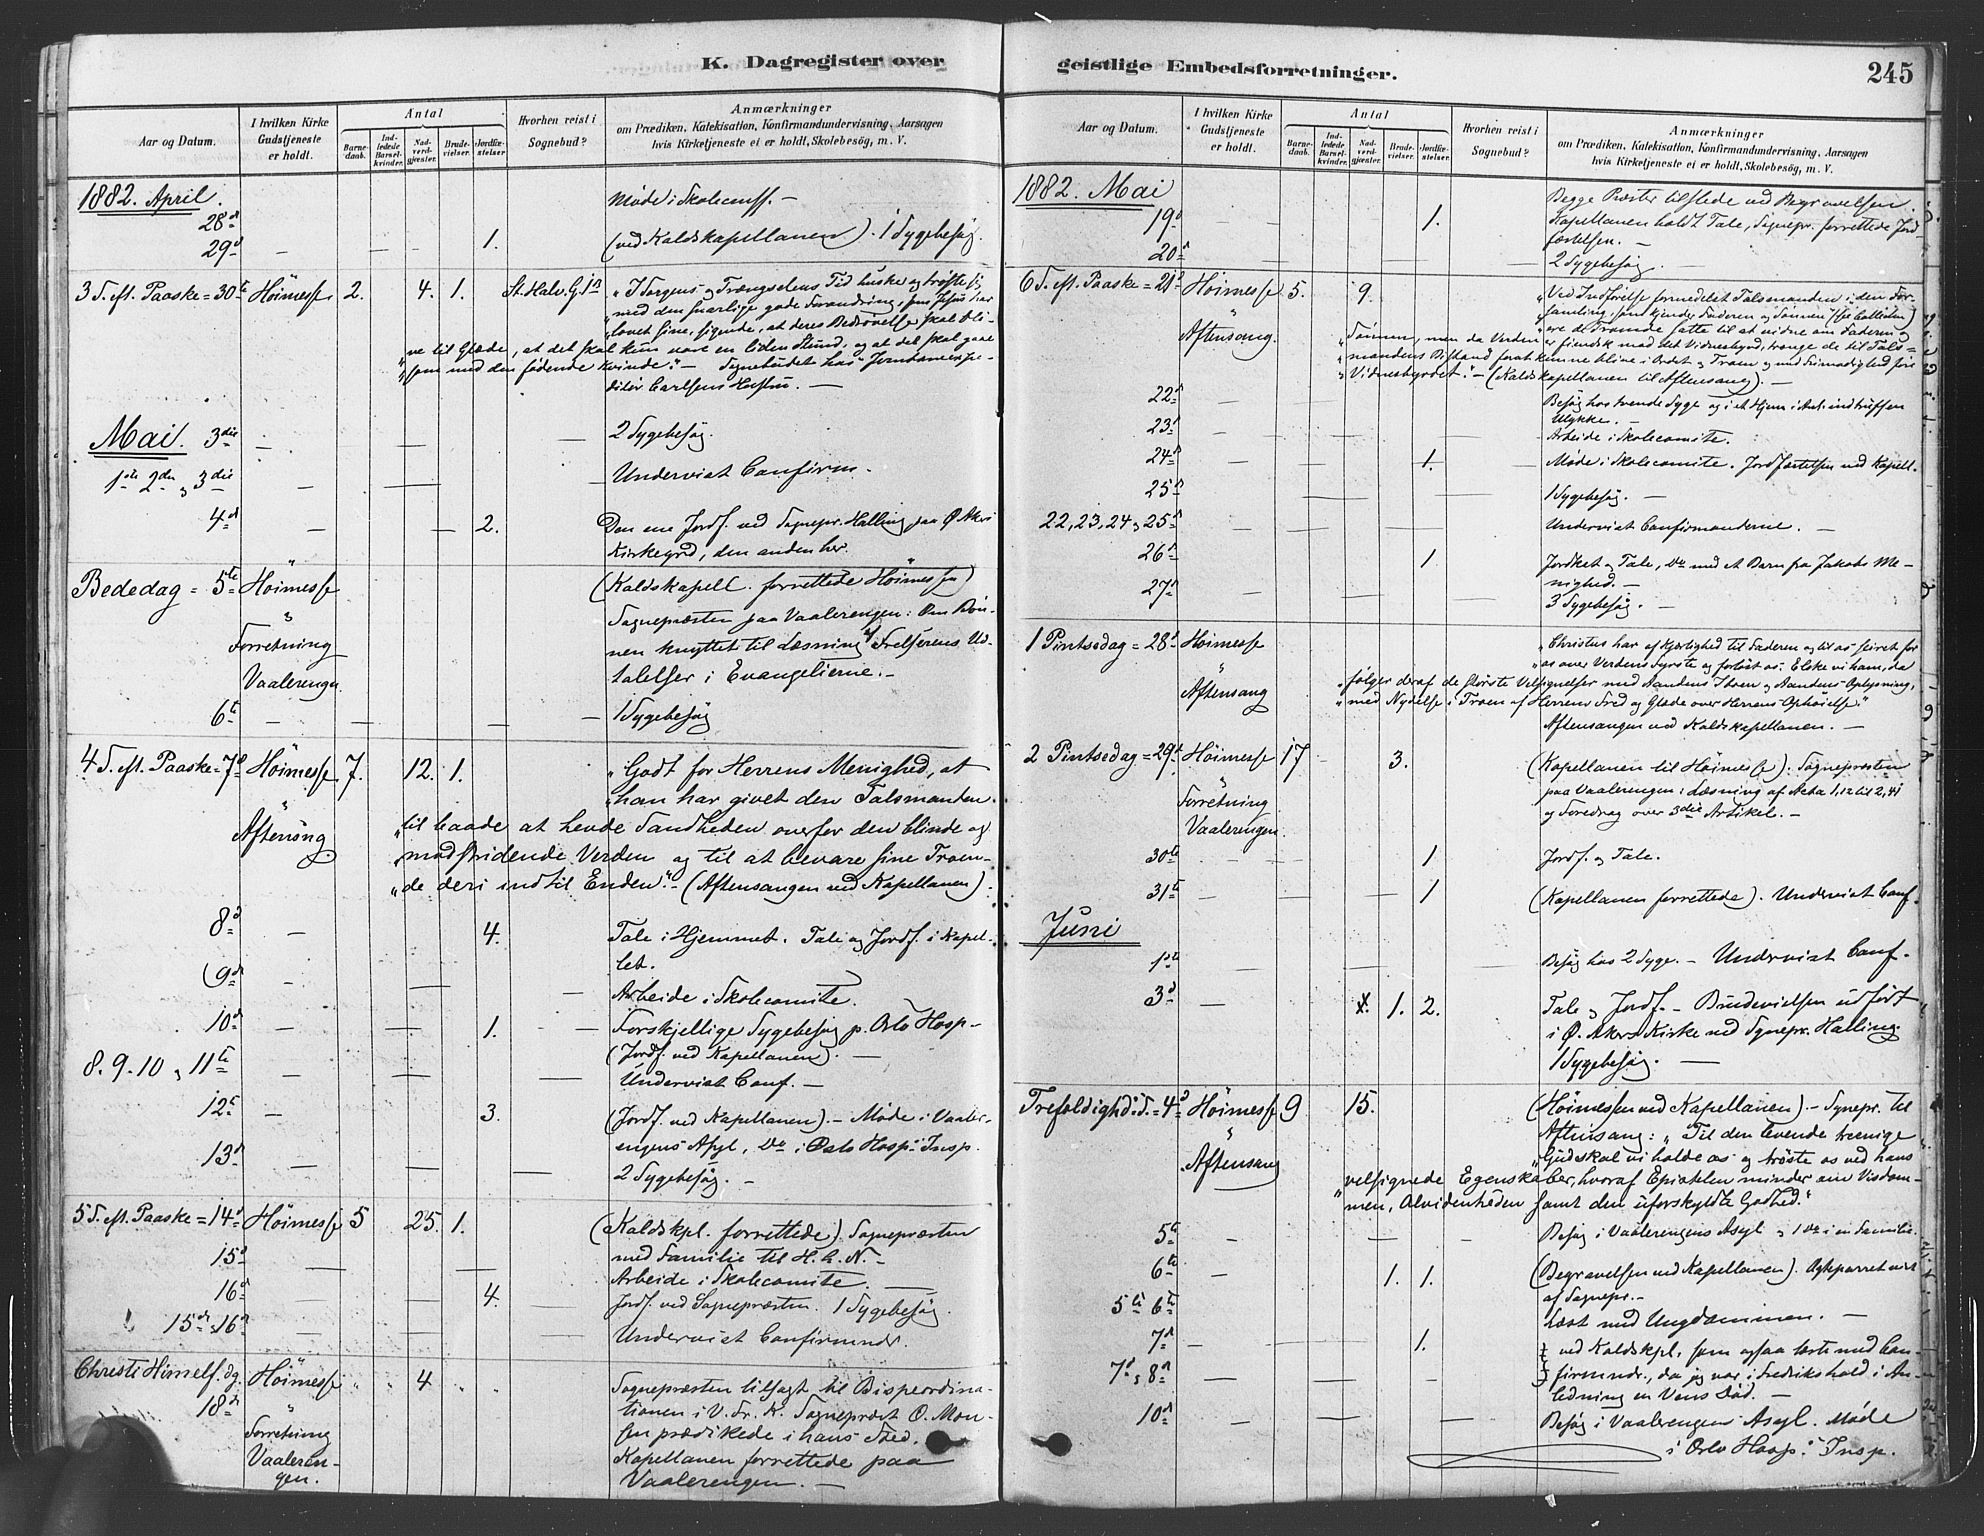 K. Dagregister over
Aar og Datum.
I hvilken Kirke Gudstjeneste er holdt.
Antal
Barnedaab.
Indledede Barselkvinder.
Nadverdgjester.
Brudevielser.
Jordfæstelser.
Hvorhen reist i Sognebud?
Anmærkninger
om Prædiken, Katekisation, Konfirmandundervisning, Aarsagen
hvis Kirketjeneste ei er holdt, Skolebesøg, m. V.
1882. April.
28de Møde i Skolecomss. —
29de — — — 1. (ved Kaldskapellanen). 1 Sygebesøg.
3 S. eft. Paaske = 30te Höimesse 2. 4. 1. St. Halv. G. "I Sorgens og Trængselens Tid huske og trøste sig
"med den snarlige gode Forandring, som Jesus har
"lovet sine, sigende, at deres Bedrøvelse skal bli-
"ve til Glæde, at det skal kun vare en liden Stund, og at det skal gaae
"som med den fødende Kvinde." — Sognebudet hos Jernbaneexpe-
ditör Carlsens Hustru. —
Mai. 3die — — — 2 Sygebesøg.
1ste 2den og 3die — — — Underviist Confirm.
4de — 2. Den ene Jordf. ved Sognepr. Halling paa Ø. Akers
Kirkegrd, den anden her.
Bededag = 5te Höimesse (Kaldskapell. forrettede Höimessen)
" Sognepræsten paa Vaalerengen: Om Bön-
Forretning nen knyttet til Læsning af Frelserens Ud-
Vaalerengen talelser i Evangelierne. —
6te — — — — 1 Sygebesøg
4 S. eft. Paaske = 7de Höimesse 7. 12. 1. "Godt for Herrens Menighed, at
" "han har givet den Talsmanden
Aftensang "til baade at hevde Sandheden overfor den blinde og
"modstridende Verden og til at bevare sine Troen-
"de deri indtil Enden." — (Aftensangen ved Kapellanen).
8de — 4. Tale i Hjemmet. Tale og Jordf. i Kapel-
let.
9de — — — Arbeide i Skolecomite.
10de — — 1. — Forskjellige Sygebesøg p. Oslo Hosp —
(Jordf. ved Kapellanen). —
8. 9. 10 og 11te — — — Underviist Conf. —
12te — 3. (Jordf. ved Kapellanen). — Møde i Vaaler-
engens Asyl, Do i Oslo Hosp. Insp.
13de — — — 2 Sygebesøg. —
5 S. eft. Paaske = 14de Höimesse 5 25. 1. (Kaldskpl. forrettede). Sognepræsten
med Familie til H. h. N. —
15de — — — Arbeide i Skolecomite. —
16de — — 4. — Jordf. ved Sognepræsten. 1 Sygebesøg.
15de og 16de — — — Underviist Confirmndr.
Christi Himmelf. dg. Höimesse " " 4 " " Sognepræsten tilsagt til Bispeordina-
18de " tionen i V. Fr. K. Sognepræst O. Mon-
Forretning sen prædikede i hans Sted.
Vaaleren- Kapellanen forrettede paa
gen. Vaalerengen. —
geistlige Embedsforretninger.
245
Aar og Datum.
I hvilken Kirke Gudstjeneste er holdt.
Antal
Barnedaab.
Indledede Barselkvinder.
Nadverdgjester.
Brudevielser.
Jordfæstelser.
Hvorhen reist i Sognebud?
Anmærkninger
om Prædiken, Katekisation, Konfirmandundervisning, Aarsagen
hvis Kirketjeneste ei er holdt, Skolebesøg, m. V.
1882. Mai
19de — — 1. Begge Præster tilstede ved Begravelsen.
Kapellanen holdt Tale, Sognepr. forrettede Jord-
fæstelsen. —
20de — — — 2 Sygebesøg. —
6 S. eft. Paaske = 21de Höimesse 5. 9. "Ved Indførelse formedelst Talsmanden i den For-
" "samling, som kjender Faderen og Sønnen
Aftensang. "ere de Troende satte til at vidne om Faderen og
"Sønnen, men da Verden er fiendsk mod det Vidnesbyrd, trænge de til Tals-
"mandens Bistand forat kunne blive i Ordet og Troen og med Frimodighed føre
"Vidnesbyrdet." — (Kaldskapellanen til Aftensang). —
22de — — — Besøg hos tvende Syge og i et Hjem i Anl. indtruffen
Ulykke. —
23de — — — Arbeide i Skolecomite.
24de — — 1. — Møde i Skolecomite. Jordfæstelsen ved Kapell.
25de — — 1 Sygebesøg. —
22, 23, 24 og 25de — — — Underviist Confirmanderne. —
26de — 1. Jordket. og Tale, Do med et Barn fra Jakobs Me-
nighed. —
27de — — — 3 Sygebesøg. —
1 Pintsedag = 28de Höimesse "Christus har af Kjærlighed til Faderen og til os seiret for
" "os over Verdens Fyrste og forløst os. Elske vi ham, da
Aftensang "følger deraf de største Velsignelser med Aandens Iboen og Aandens Oplysning,
"med Nydelse i Troen af Herrens Fred og Glæde over Herrens Ophöielse."
Aftensangen ved Kaldskapellanen. —
2 Pintsedag = 29de Höimesse 17 3. (Kapellanen til Höimesse). Sognepræsten
Forretning paa Vaalerengen: Læsning af Acta 1,12 til 2,41
Vaalerengen og Foredrag over 3die Artikel. —
30te — — 1 Jordf. og Tale.
31te — — 1 (Kapellanen forrettede). Underviist Conf.
Juni
1ste — — — Besøg hos 2 Syge. — Underviist Conf.
3de — 1. 2. Tale og Jordf. — Brudevielsen udført
i Ø. Akers Kirke ved Sognepr. Halling.
1 Sygebesøg. —
Trefoldighd: S. = 4de Höimesse 9 15. (Höimessen ved Kapellanen). — Sognepr. til
" Aftensang: "Til den levende treenige
Aftensang "Gud skal vi holde os og trøste os ved hans
"velsignede Egenskaber, hvoraf Epistelen minder om Visdom-
men, Alvidenheden samt den uforskyldte Godhed."
5te — — — Besøg i Vaalerengens Asyl og 1 Do i en Familie.
6te — 1. 1. (Begravelsen ved Kapellanen). Ægteparret viet
af Sognepr. —
5te 6te — — Læst med Ungdommen. —
7de — — 1. ved Kaldskpl. som ogsaa læste med Con-
7de og 8de — — — firmndr., da jeg var i Fredrikshald i An-
ledning en Vens Död. —
10de — — — Besøg i Vaalerengens Asyl. Møde
i Oslo Hosp. Insp.